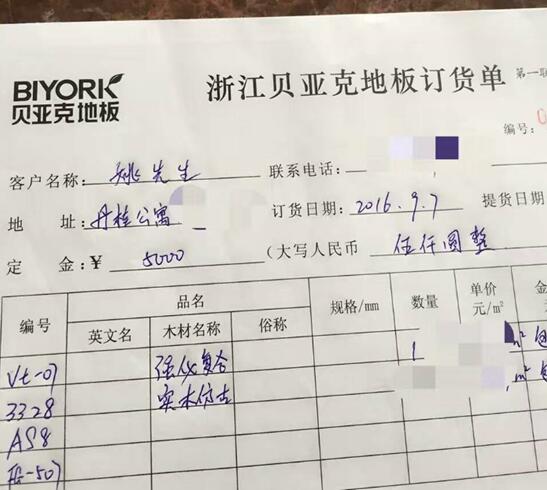 BIYORK
贝亚克地板
浙江贝亚克地板订货单
第一联
编号:0
客户名称: 姚先生 联系电话:
地 址: 丹桂公寓 订货日期: 2016.9.7 提货日期
定 金:¥ 5000 (大写人民币 伍仟圆整
编号 品名 规格/mm 数量 单价 金
英文名 木材名称 俗称 元/m²
Vt-07 强化复合 1 m² 包
3328 实木仿古 m² 包
AS8
-507